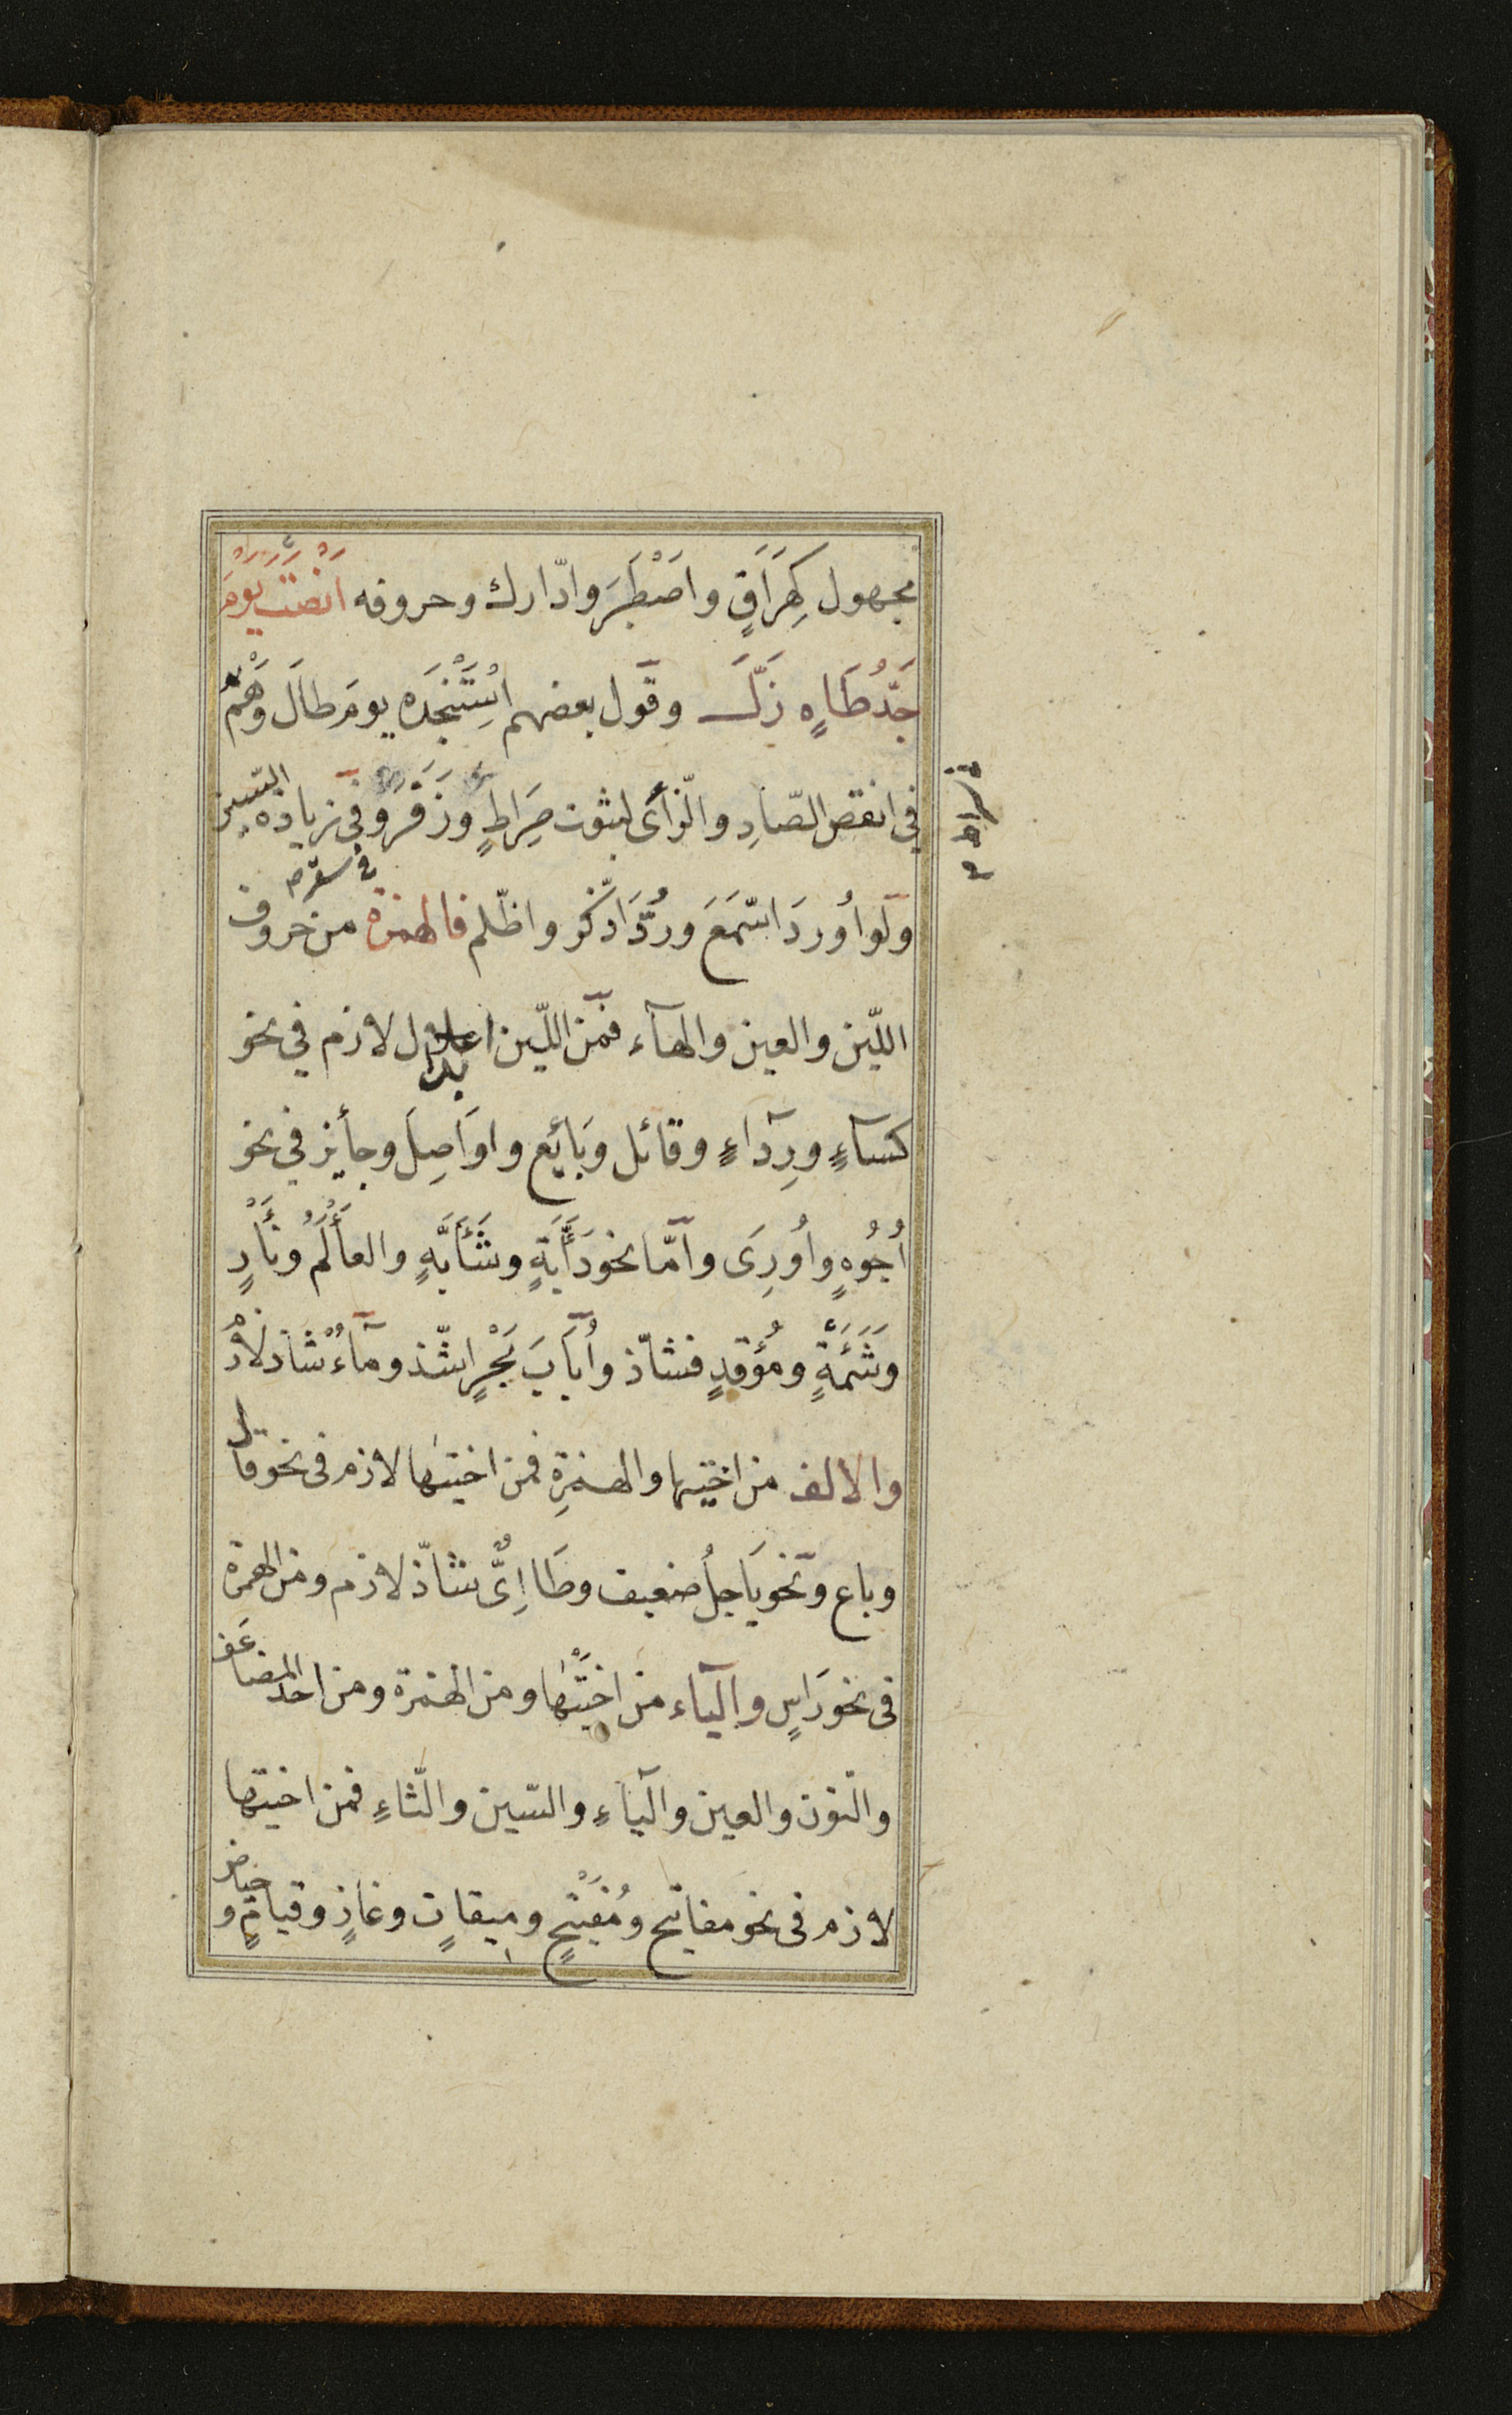 مجهول كِهَرَاقٍ واصْطَبَرَ وادّارك وحروفه اَنْصَتَ يَوْمَ
جَدُّ طَاهٍ زَلَّ وقول بعضهم اسْتَنْجَدَه يومَ طالَ وَهْمٌ
في نقص الصّادِ والزّاى لثبوت صِرَاطٍ وزَقَرَ وفى زيادة السّين
ولو اُورِدَ اسَّمَعَ ورُدَّ اذّكر واظّلم فالهمزة من حروف
اللّين والعين والهآء فمن اللّين اعلال لازم في نحو
كسآءٍ ورِدآءٍ وقائل وبَائِع واوَاصِلَ وجأيز في نحو
اُجُوهٍ واُورِىَ وامّا نحو دَأَبَّةٍ وشَأَبَّةٍ والعأْلَم وبَأْزٍ
وشَئِمَةٍ ومُؤْقِدٍ فشاذّ واُبَابَ بَحْرٍ اشذّ ومآءٌ شاذ لازمٌ
والالف من اختيها والهمزةِ فمن اختيها لازم فى نحو قال
وباع ونحو يَاجلُ ضعيف وطَاإِىٌّ شاذّ لازم ومن الهمزة
فى نحو رَاسٍ والياء من اختيها ومن الهمزة ومن احد المضاعَف
والنون والعين والباءِ والسّين والثّاءِ فمن اختيها
لازم فى نحو مفاتيح ومُفَيْتِحٍ وميقاتٍ وغازٍ وقيامٍ وحياض